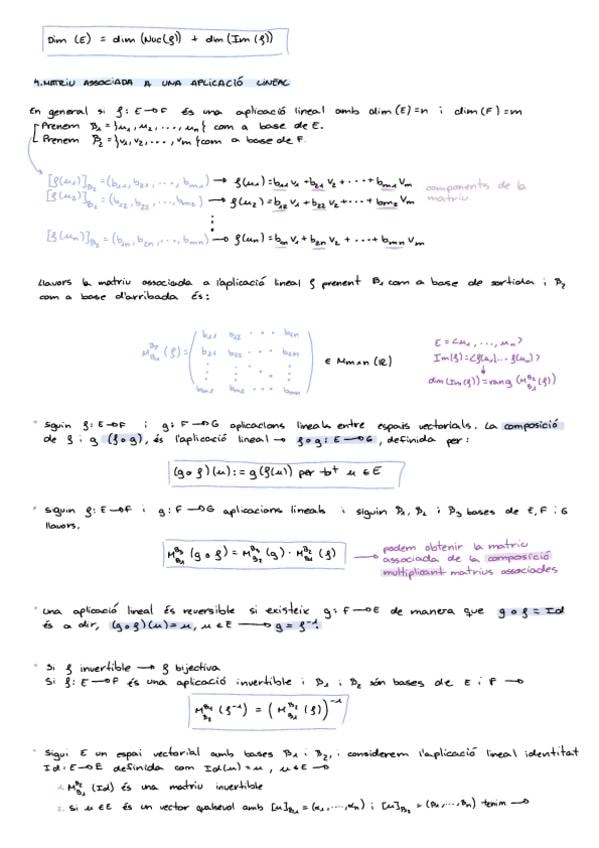 Dim (E) = dim (Nuc(f)) + dim (Im (f))
4. MATRIU ASSOCIADA A UNA APLICACIÓ LINEAL
En general si f: E→F és una aplicació lineal amb dim(E)=n i dim(F)=m
Prenem B₁ = {u₁, u₂, ..., uₙ} com a base de E.
Prenem B₂ = {v₁, v₂, ..., vₘ} com a base de F.
[f(u₁)]_B₂ = (b₁₁, b₂₁, ..., bₘ₁) → f(u₁) = b₁₁v₁ + b₂₁v₂ + ··· + bₘ₁vₘ components de la
[f(u₂)]_B₂ = (b₁₂, b₂₂, ..., bₘ₂) → f(u₂) = b₁₂v₁ + b₂₂v₂ + ··· + bₘ₂vₘ matriu
⋮
[f(uₙ)]_B₂ = (b₁ₙ, b₂ₙ, ..., bₘₙ) → f(uₙ) = b₁ₙv₁ + b₂ₙv₂ + ··· + bₘₙvₘ
Llavors la matriu associada a l'aplicació lineal f prenent B₁ com a base de sortida i B₂
com a base d'arribada és:
∈ Mm×n (ℝ)
E = <u₁, ..., uₙ>
Im(f) = <f(u₁)...f(uₙ)>
dim(Im(f)) = rang (M_B₁^B₂(f))
siguin f: E→F i g: F→G aplicacions lineals entre espais vectorials. La composició
de f i g (f∘g), és l'aplicació lineal → f∘g: E→G, definida per:
(g∘f)(u) := g(f(u)) per tot u ∈ E
siguin f: E→F i g: F→G aplicacions lineals i siguin B₁, B₂ i B₃ bases de E, F i G
llavors,
M_B₁^B₃ (g∘f) = M_B₂^B₃ (g) · M_B₁^B₂ (f)
podem obtenir la matriu
associada de la composició
multiplicant matrius associades
una aplicació lineal és reversible si existeix g: F→E de manera que g∘f = Id
és a dir, (g∘f)(u) = u, u ∈ E → g = f⁻¹
Si f invertible → f bijectiva
Si f: E→F és una aplicació invertible i B₁ i B₂ són bases de E i F →
M_B₂^B₁ (f⁻¹) = (M_B₁^B₂ (f))⁻¹
Sigui E un espai vectorial amb bases B₁ i B₂, i considerem l'aplicació lineal identitat
Id: E→E definida com Id(u) = u, u ∈ E →
1. M_B₁^B₂ (Id) és una matriu invertible
2. Si u ∈ E és un vector qualsevol amb [u]_B₁ = (α₁, ..., αₙ) i [u]_B₂ = (β₁, ..., βₙ) tenim →